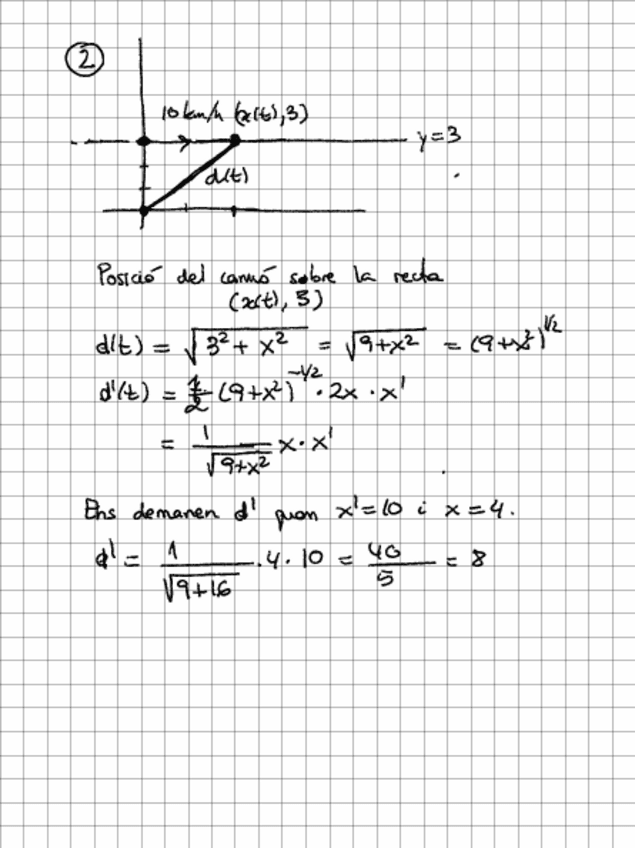 2
10 km/h (x(t), 3)
y = 3
d(t)
Posició del camió sobre la recta
(x(t), 3)
d(t) = √(3² + x²) = √(9+x²) = (9+x²)^1/2
d'(t) = 1/2 (9+x²)^-1/2 · 2x · x'
= 1/√(9+x²) x · x'
Ens demanen d' quan x' = 10 i x = 4.
d' = 1/√(9+16) · 4 · 10 = 40/5 = 8